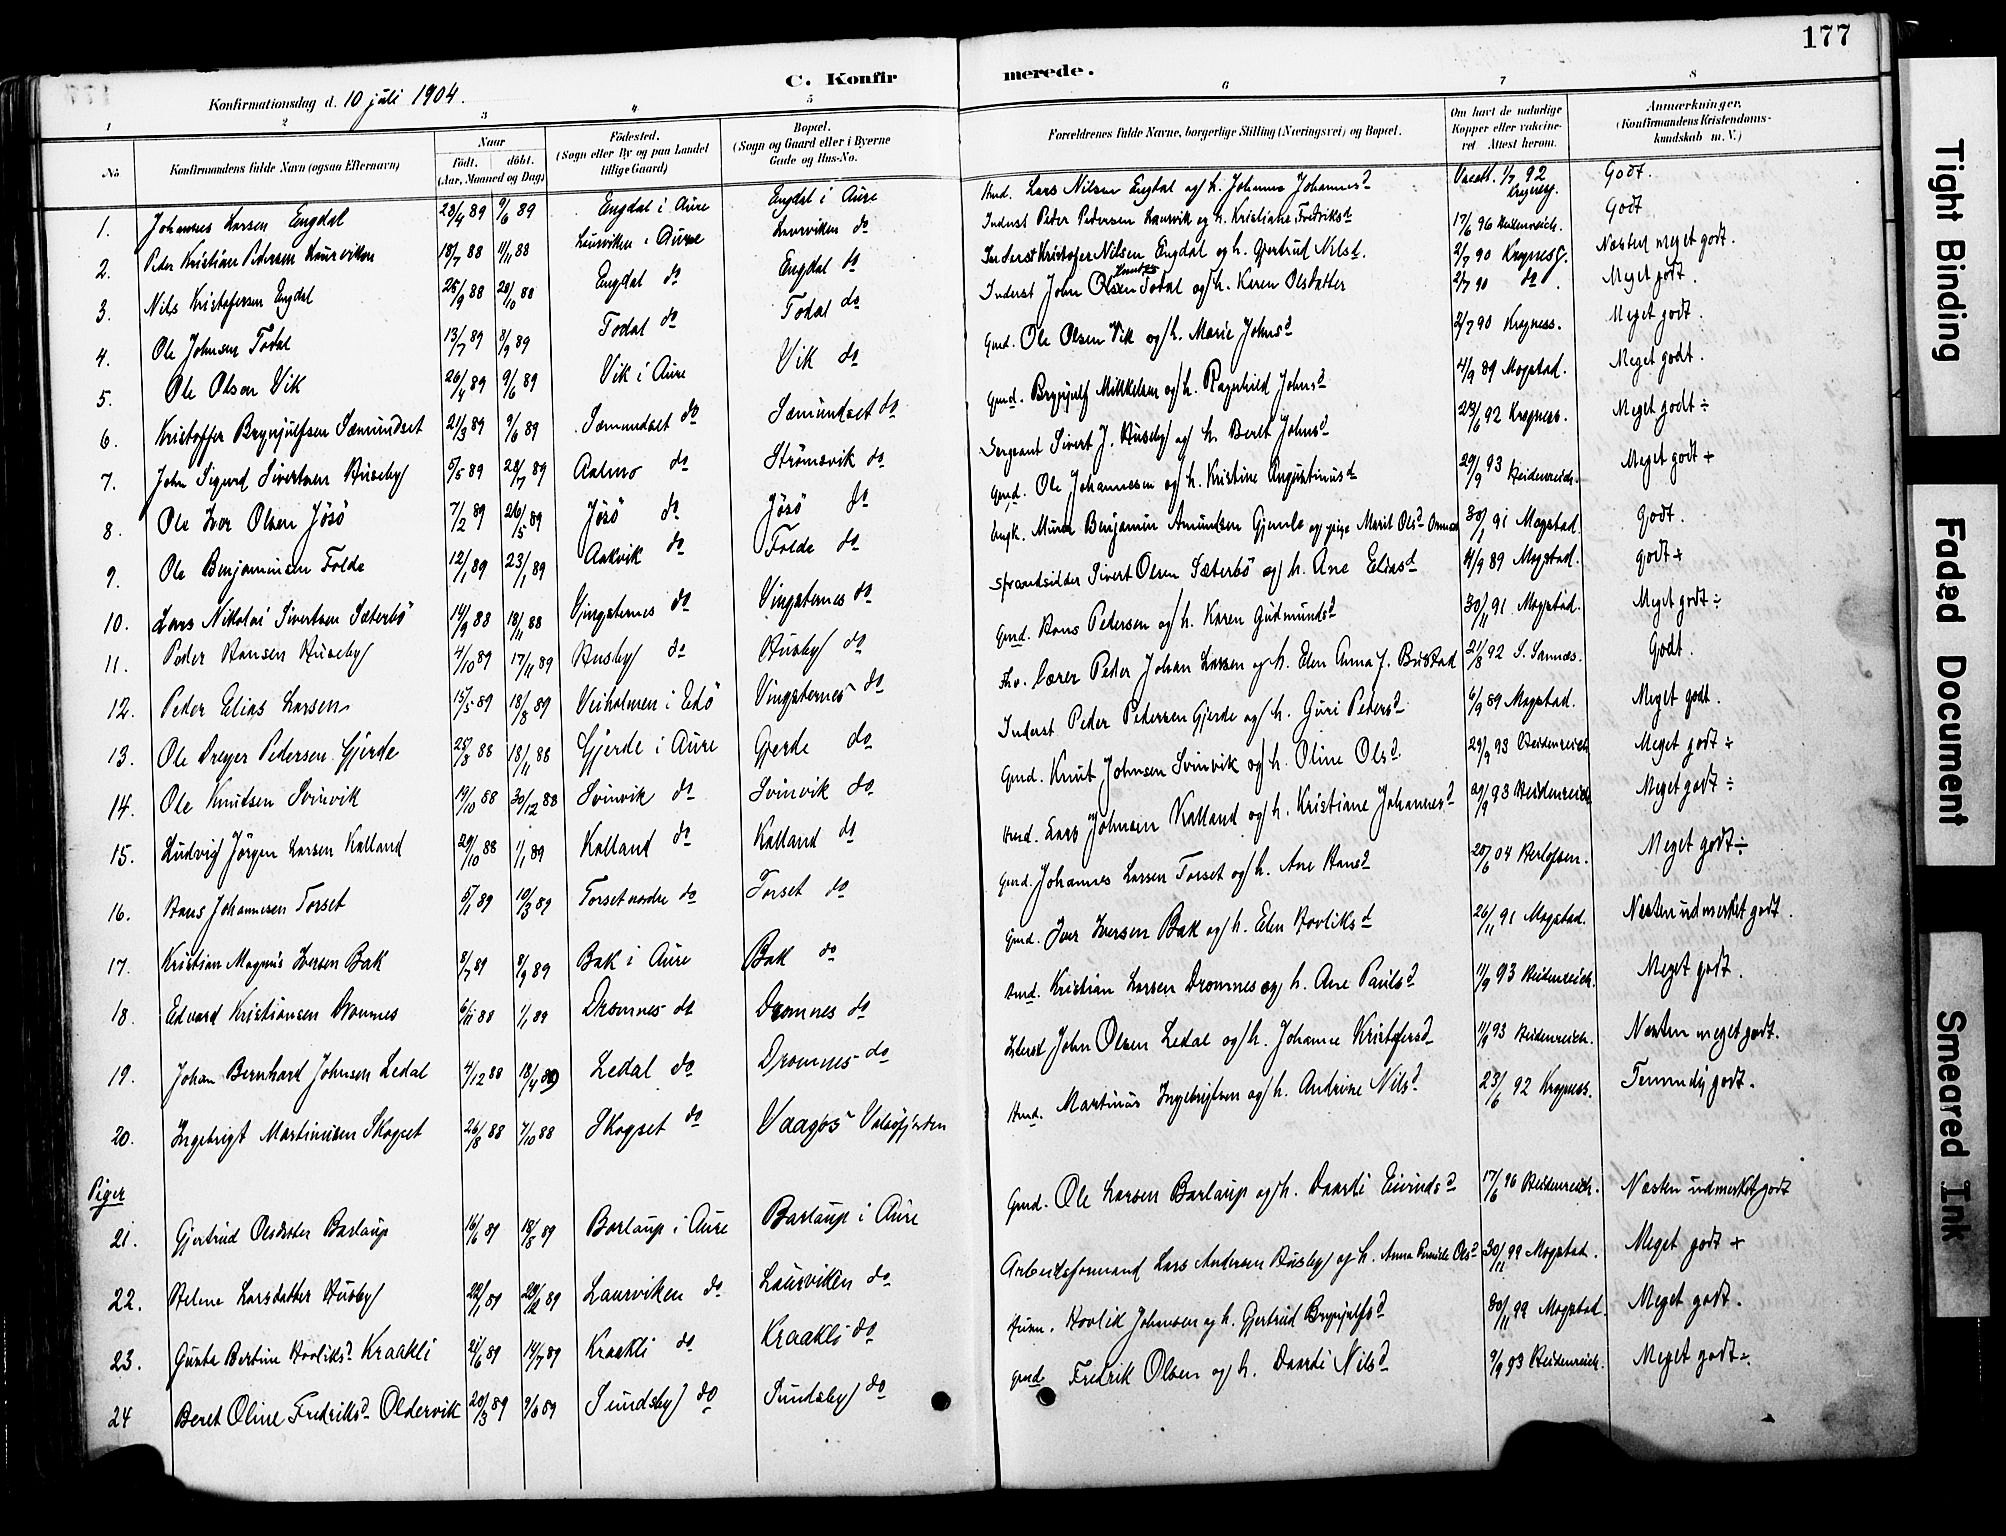 177
C. Konfirmerede.
Konfirmationsdag d. 10 juli 1904.
1 2 3 4 5 6 7 8
No. Konfirmandens fulde Navn (ogsaa Efternavn) Naar Födt. döbt. (Aar, Maaned og Dag) Födested. (Sogn eller By og paa Landet tillige Gaard) Bopæl. (Sogn og Gaard eller i Byerne Gade og Hus-No. Forældrenes fulde Navne, borgerlige Stilling (Næringsvei) og Bopæl. Om havt de naturlige Kopper eller vaccineret Attest herom. Anmærkninger, (Konfirmandens Kristendomskundskab m. V.)
1. Johannes Larsen Engdal 23/4 89 9/6 89 Engdal i Aure Engdal i Aure Lars Nilsen Engdal og h. Johanna Johannesd 1/7 92 Godt.
2. Peder Kristian Pedersen Laurviken 18/7 88 11/11 88 Laurviken i Aure Laurviken do Inderst Peder Pedersen Laurvik og h. Kristiane Fredriksd 17/6 96 Heidenreich. Godt
3. Nils Kristofersen Engdal 25/9 88 28/10 88 Engdal do Engdal do Inderst Kristofer Nilsen Engdal og h. Gjertrud Nilsd. 2/7 90 Krogness. Næsten meget godt.
4. Ole Johnsen Todal 13/7 89 8/9 89 Todal do Todal do Inderst John Olsen Todal og h. Karen Olsdatter 2/7 90 do. Meget godt.
5. Ole Olsen Vik 26/4 89 9/6 89 Vik i Aure Vik do Gmd. Ole Olsen Vik og h. Marie Johnsd 2/7 90 Krogness. Meget godt.
6. Kristoffer Brynjulfsen Sæmundset 21/3 89 9/6 89 Sæmundset do Sæmundset do Gmd. Brynjulf Mikkelsen og h. Ragnhild Johnsd 4/9 89 Mogstad. Meget godt.
7. John Sigurd Sivertsen Huseby 5/5 89 28/7 89 Aalmo do Strömsvik do Sergeant Sivert J. Huseby og h. Beret Johnsd 23/6 92 Krogness. Meget godt ÷
8. Ole Iver Olsen Jösö 7/2 89 26/5 89 Jösö do Jösö do Gmd. Ole Johannesen og h. Kristine Augustinusd 29/9 93 Heidenreich. Meget godt +
9. Ole Benjaminsen Folde 12/1 89 23/1 89 Aakvik do Folde do Ungk. Murer Benjamin Amundsen Gjemla og pige Marit Olsd 30/1 91 Mogstad. Godt.
10. Lars Nikolai Sivertsen Sæterbö 14/9 88 18/11 88 Vingsternes do Vingsternes do Strandsidder Sivert Olsen Sæterbö og h. Ane Eliasd 4/9 89 Mogstad. godt +
11. Peder Hansen Huseby 4/10 89 17/11 89 Husby do Husby do Gmd. Hans Pedersen og h. Karen Gudmundsd 30/11 91 Mogstad. Meget godt ÷
12. Peder Elias Larsen 15/5 89 18/8 89 Veiholmen i Edö Vingsternes do Fhv. lærer Peder Johan Larsen og h. Elen Anna J. Bustad 21/8 92 S. Sannæs. Godt.
13. Ole Dreyer Pedersen Gjerde 25/8 88 18/11 88 Gjerde i Aure Gjerde do Inderst Peder Pedersen Gjerde og h. Guri Pedersd 6/9 89 Mogstad. Meget godt.
14. Ole Knudsen Svinvik 14/10 88 30/12 88 Svinvik do Svinvik do Gmd. Knut Johnsen Svinvik og h. Oline Olsd. 29/9 93 Heidenreich Meget godt ÷
15. Ludvig Jörgen Larsen Kalland 29/10 88 1/1 89 Kalland do Kalland do Lars Johnsen Kalland og h. Kristiane Johannesd 29/9 93 Heidenreich Meget godt ÷
16. Hans Johannesen Torset 5/1 89 10/3 89 Torset nordre do Torset do Gmd. Johannes Larsen Torset og h. Ane Hansd 20/6 04 Herlofsen. Meget godt ÷
17. Kristian Magnus Iversen Bak 8/7 89 8/9 89 Bak i Aure Bak do Gmd. Iver Iversen Bak og h. Elen Hovliksd 26/11 91 Mogstad. Næsten udmerket godt.
18. Edvard Kristiansen Dromnes 6/11 88 1/1 89 Dromnes do Dromnes do Kristian Larsen Dromnes og h. Ane Paulsd 11/9 93 Heidenreich. Meget godt.
19. Johan Bernhard Johnsen Ledal 4/12 88 18/4 89 Ledal do Dromnes do Inderst John Olsen Ledal og h. Johanne Kristofersd 11/9 93 Heidenreich. Næsten meget godt.
20. Ingebrigt Martinusen Skogset 26/8 88 7/10 88 Skogset do Vaagos Valsöfjorden Martinus Ingebrigtsen og h. Andrine Nilsd 23/6 92 Krogness. Temmelig godt.
Piger
21. Gjertrud Olsdatter Barlaup 16/6 89 18/8 89 Barlaup i Aure Barlaup i Aure Gmd. Ole Larsen Barlaup og h. Daardi Eivindsd 17/6 96 Heidenreich. Næsten udmerket godt
22. Helene Larsdatter Husby 22/1 89 Laurviken do Laurviken do Arbeidsformand Lars Andersen Husby og h. Anna Olsd 30/11 99 Mogstad. Meget godt +
23. Gusta Bertine Hovliksd Kraakli 21/6 89 14/7 89 Kraakli do Kraakli do Husm. Hovlik Johansen og h. Gjertrud Brynjulfsd 30/11 99 Mogstad. Meget godt.
24 Beret Oline Fredriksd Oldervik 20/3 89 9/6 89 Sundsby do Sundsby do Gmd Fredrik Olsen og h. Daardi Nilsd 9/9 93 Heidenreich. Meget godt ÷
Tight Binding
Faded Document
Smeared Ink